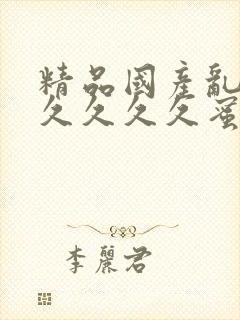 精品國產亂
久久久久蜜
李麗君